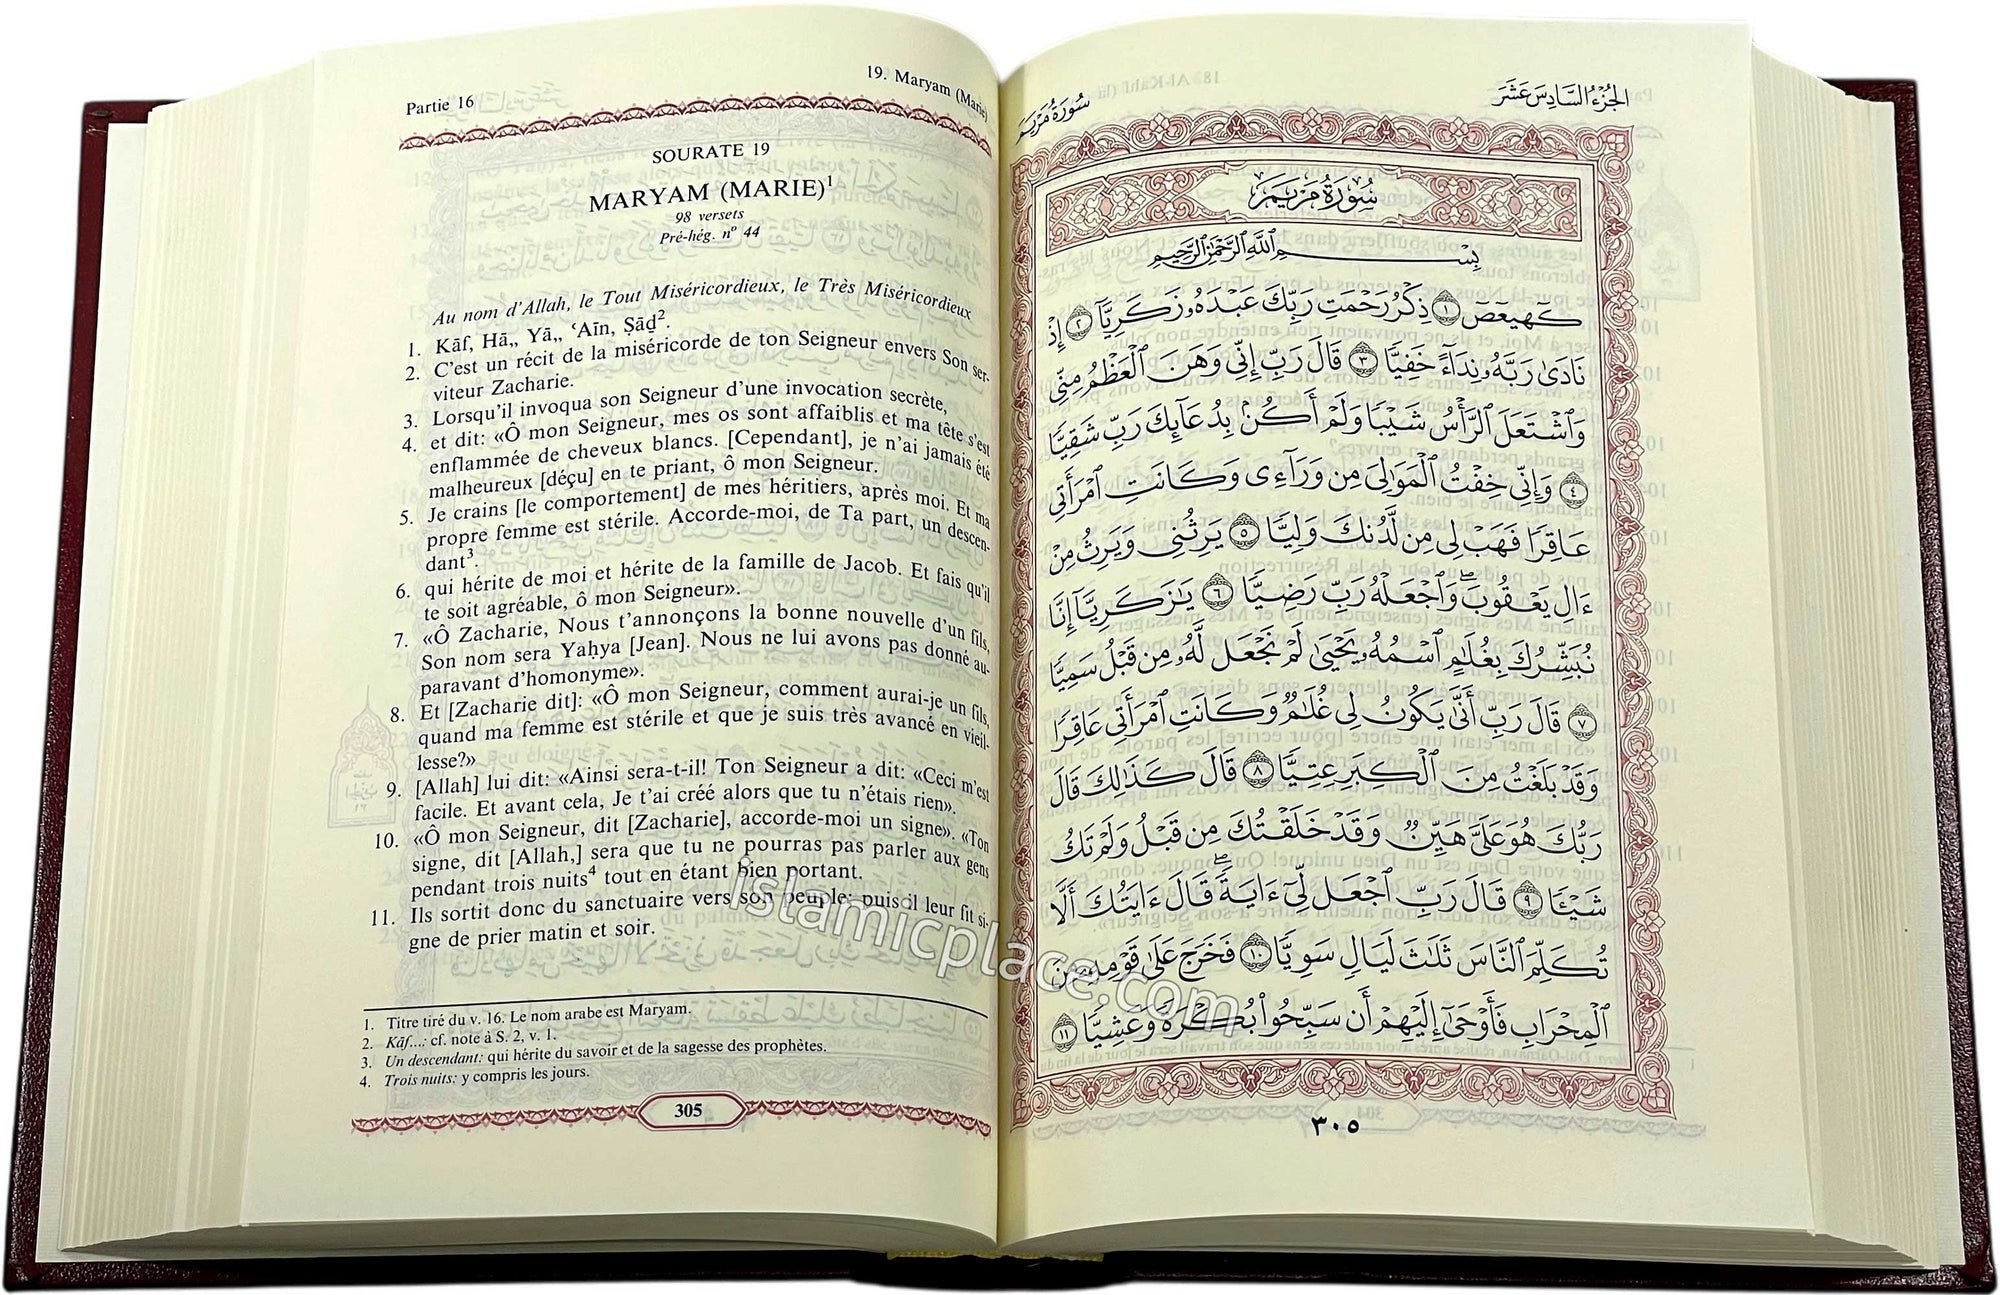 Partie 16
19. Maryam (Marie)
SOURATE 19
MARYAM (MARIE)1
98 versets
Pré-hég. nº 44
Au nom d'Allah, le Tout Miséricordieux, le Très Miséricordieux
1. Kāf, Hā,, Yā,, ʿAīn, Ṣād2.
2. C'est un récit de la miséricorde de ton Seigneur envers Son ser-
viteur Zacharie.
3. Lorsqu'il invoqua son Seigneur d'une invocation secrète,
4. et dit: «Ô mon Seigneur, mes os sont affaiblis et ma tête s'est
enflammée de cheveux blancs. [Cependant], je n'ai jamais été
malheureux [déçu] en te priant, ô mon Seigneur.
5. Je crains [le comportement] de mes héritiers, après moi. Et ma
propre femme est stérile. Accorde-moi, de Ta part, un descen-
dant3.
6. qui hérite de moi et hérite de la famille de Jacob. Et fais qu'il
te soit agréable, ô mon Seigneur».
7. «Ô Zacharie, Nous t'annonçons la bonne nouvelle d'un fils,
Son nom sera Yaḥya [Jean]. Nous ne lui avons pas donné au-
paravant d'homonyme».
8. Et [Zacharie dit]: «Ô mon Seigneur, comment aurai-je un fils,
quand ma femme est stérile et que je suis très avancé en vieil-
lesse?»
9. [Allah] lui dit: «Ainsi sera-t-il! Ton Seigneur a dit: «Ceci m'est
facile. Et avant cela, Je t'ai créé alors que tu n'étais rien».
10. «Ô mon Seigneur, dit [Zacharie], accorde-moi un signe». «Ton
signe, dit [Allah,] sera que tu ne pourras pas parler aux gens
pendant trois nuits4 tout en étant bien portant.
11. Ils sortit donc du sanctuaire vers son peuple; puis il leur fit si-
gne de prier matin et soir.
1. Titre tiré du v. 16. Le nom arabe est Maryam.
2. Kāf...: cf. note à S. 2, v. 1.
3. Un descendant: qui hérite du savoir et de la sagesse des prophètes.
4. Trois nuits: y compris les jours.
305
سُورَةُ مَرْيَمَ
الجُزْءُ السَّادِسَ عَشَرَ
سُورَةُ مَرْيَمَ
بِسْمِ ٱللَّهِ ٱلرَّحْمَٰنِ ٱلرَّحِيمِ
كٓهيعٓصٓ ١ ذِكْرُ رَحْمَتِ رَبِّكَ عَبْدَهُۥ زَكَرِيَّآ ٢ إِذْ
نَادَىٰ رَبَّهُۥ نِدَآءً خَفِيًّا ٣ قَالَ رَبِّ إِنِّى وَهَنَ ٱلْعَظْمُ مِنِّى
وَٱشْتَعَلَ ٱلرَّأْسُ شَيْبًا وَلَمْ أَكُنۢ بِدُعَآئِكَ رَبِّ شَقِيًّا
٤ وَإِنِّى خِفْتُ ٱلْمَوَٰلِىَ مِن وَرَآءِى وَكَانَتِ ٱمْرَأَتِى
عَاقِرًا فَهَبْ لِى مِن لَّدُنكَ وَلِيًّا ٥ يَرِثُنِى وَيَرِثُ مِنْ
ءَالِ يَعْقُوبَ ۖ وَٱجْعَلْهُ رَبِّ رَضِيًّا ٦ يَٰزَكَرِيَّآ إِنَّا
نُبَشِّرُكَ بِغُلَٰمٍ ٱسْمُهُۥ يَحْيَىٰ لَمْ نَجْعَل لَّهُۥ مِن قَبْلُ سَمِيًّا
٧ قَالَ رَبِّ أَنَّىٰ يَكُونُ لِى غُلَٰمٌ وَكَانَتِ ٱمْرَأَتِى عَاقِرًا
وَقَدْ بَلَغْتُ مِنَ ٱلْكِبَرِ عِتِيًّا ٨ قَالَ كَذَٰلِكَ قَالَ
رَبُّكَ هُوَ عَلَىَّ هَيِّنٌ وَقَدْ خَلَقْتُكَ مِن قَبْلُ وَلَمْ تَكُ
شَيْـًٔا ٩ قَالَ رَبِّ ٱجْعَل لِّىٓ ءَايَةً ۚ قَالَ ءَايَتُكَ أَلَّا
تُكَلِّمَ ٱلنَّاسَ ثَلَٰثَ لَيَالٍ سَوِيًّا ١٠ فَخَرَجَ عَلَىٰ قَوْمِهِۦ مِنَ
ٱلْمِحْرَابِ فَأَوْحَىٰٓ إِلَيْهِمْ أَن سَبِّحُوا۟ بُكْرَةً وَعَشِيًّا ١١
٣٠٥
islamicplace.com